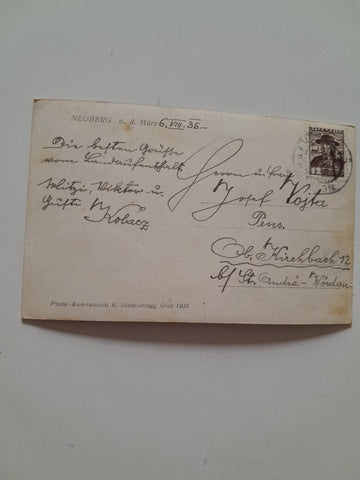 NEUBERG a. d. Mürz 6. VIII. 35.
Die besten Grüße
vom Landaufenthalt
Mitzi, Viktor u.
Gusti Kobacz
ÖSTERREICH
Herrn u. Frau
Josef Vojta
Pens.
Ob. Kirchbach 12
b/ St. Andrä-Wördern
Photo-Kunstanstalt K. Glantschnigg Graz 1935